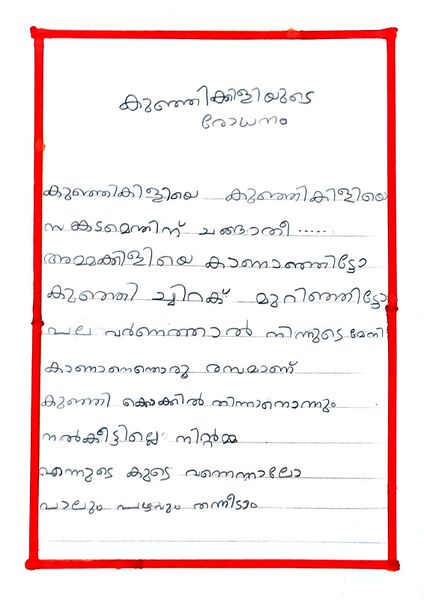 കുഞ്ഞിക്കിളിയുടെ
രോധനം
കുഞ്ഞികിളിയെ കുഞ്ഞികിളിയെ
സങ്കടമെന്തിന് ചങ്ങാതീ ......
അമ്മക്കിളിയെ കാണാഞ്ഞിട്ടോ
കുഞ്ഞി ച്ചിറക് മുറിഞ്ഞിട്ടോ
പല വർണത്താൽ നിന്നുടെ മേനി
കാണാനെന്തൊരു രസമാണ്
കുഞ്ഞി കൊക്കിൽ തിന്നാനൊന്നും
നൽകീട്ടില്ലെ നിന്റമ്മ
എന്നുടെ കുടെ വന്നെന്നാലോ
പാലും പഴവും തന്നീടാം